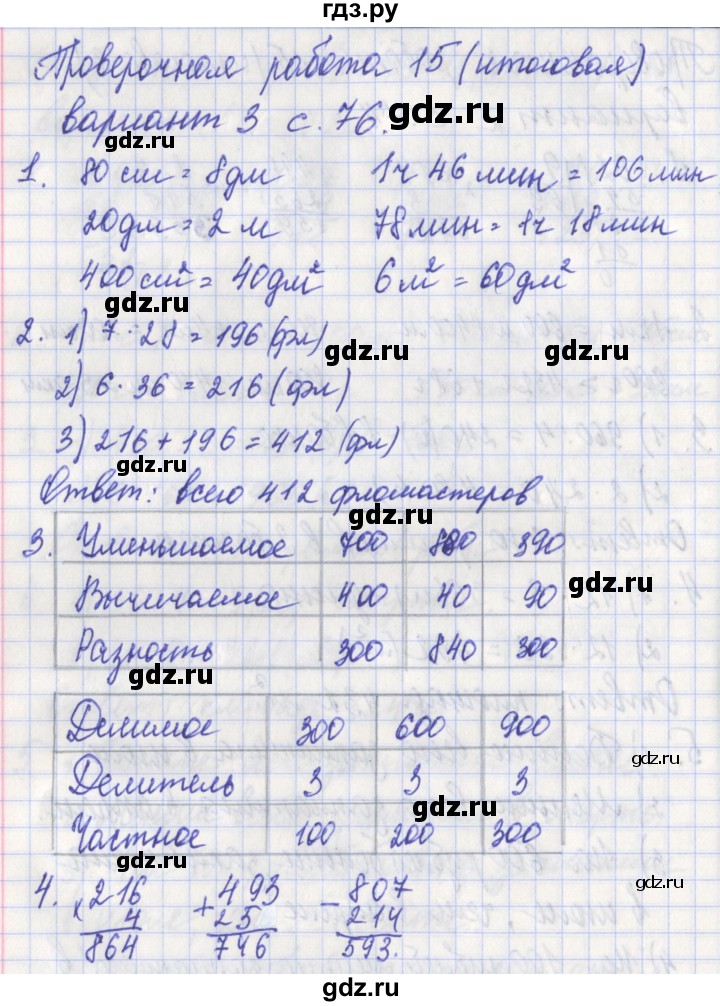 гдз.ру
Проверочная работа 15 (итоговая)
вариант 3 с. 76.
gdz.ru
gdz.ru
1. 80 см = 8 дм 1 ч 46 мин = 106 мин
gdz.ru
20 дм = 2 м 78 мин = 1 ч 18 мин
400 см² = 40 дм² 6 м² = 60 дм²
gdz.ru
2. 1) 7 · 28 = 196 (фл)
gdz.ru
gdz.ru
2) 6 · 36 = 216 (фл)
3) 216 + 196 = 412 (фл)
gdz.ru
Ответ: всего 412 фломастеров
gdz.ru
3. Уменьшаемое 700 880 390
gdz.ru
Вычичаемое 400 40 90
Разность 300 840 300
gdz.ru
Делимое 300 600 900
gdz.ru
Делитель 3 3 3
gdz.ru
Частное 100 200 300
4. × 216 + 493 − 807
gdz.ru
gdz.ru
4 25 214
864 746 593.
gdz.ru